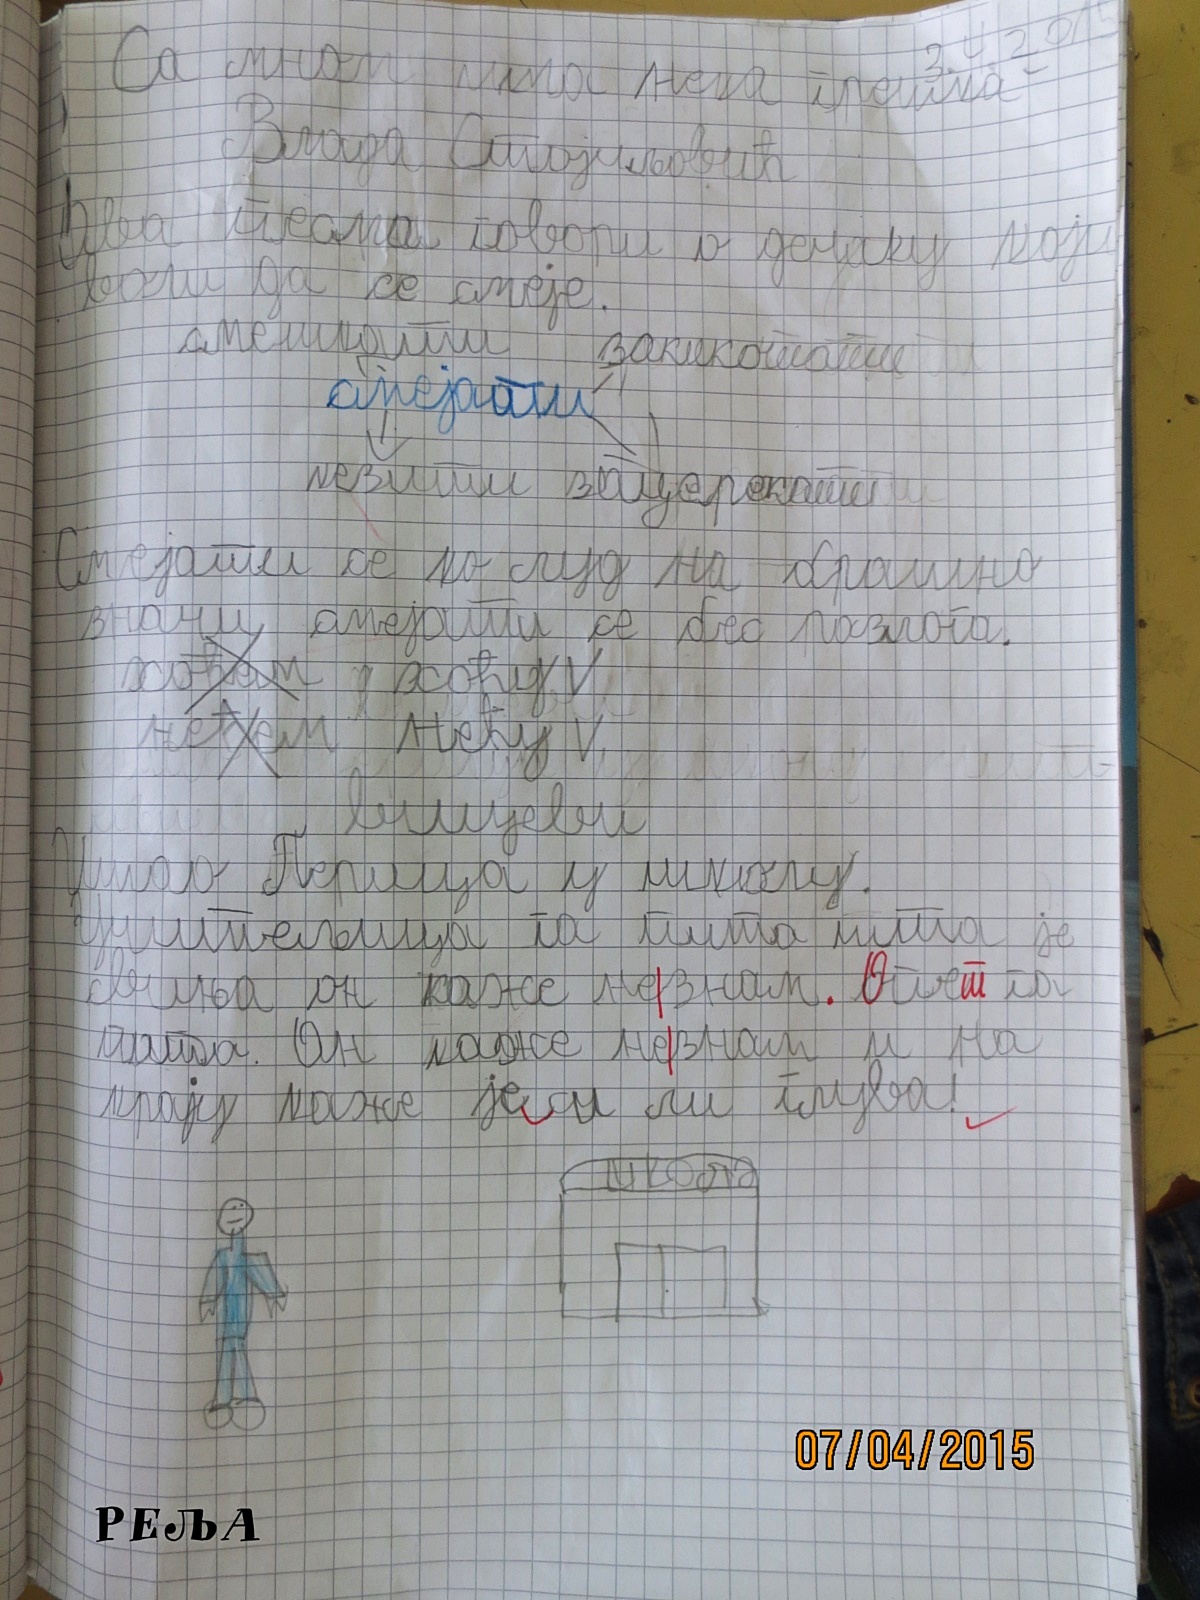 3.4.2015
Са мном има нека грешка
Влада Стојиљовић
Ова песма говори о дечаку који
воли да се смеје.
смешити закикотати
смејати
кезити зацерекати
Смејати се ко луд на брашно
значи смејати се без разлога.
хоћем хоћу V
нећем нећу V
вицеви
Ушао Перица у школу.
Учитељица га пита шта је
свиња он каже не|знам. Опет га
пита. Он каже не|знам и на
крају каже јеси ли глува!
ШКОЛА
07/04/2015
РЕЉА